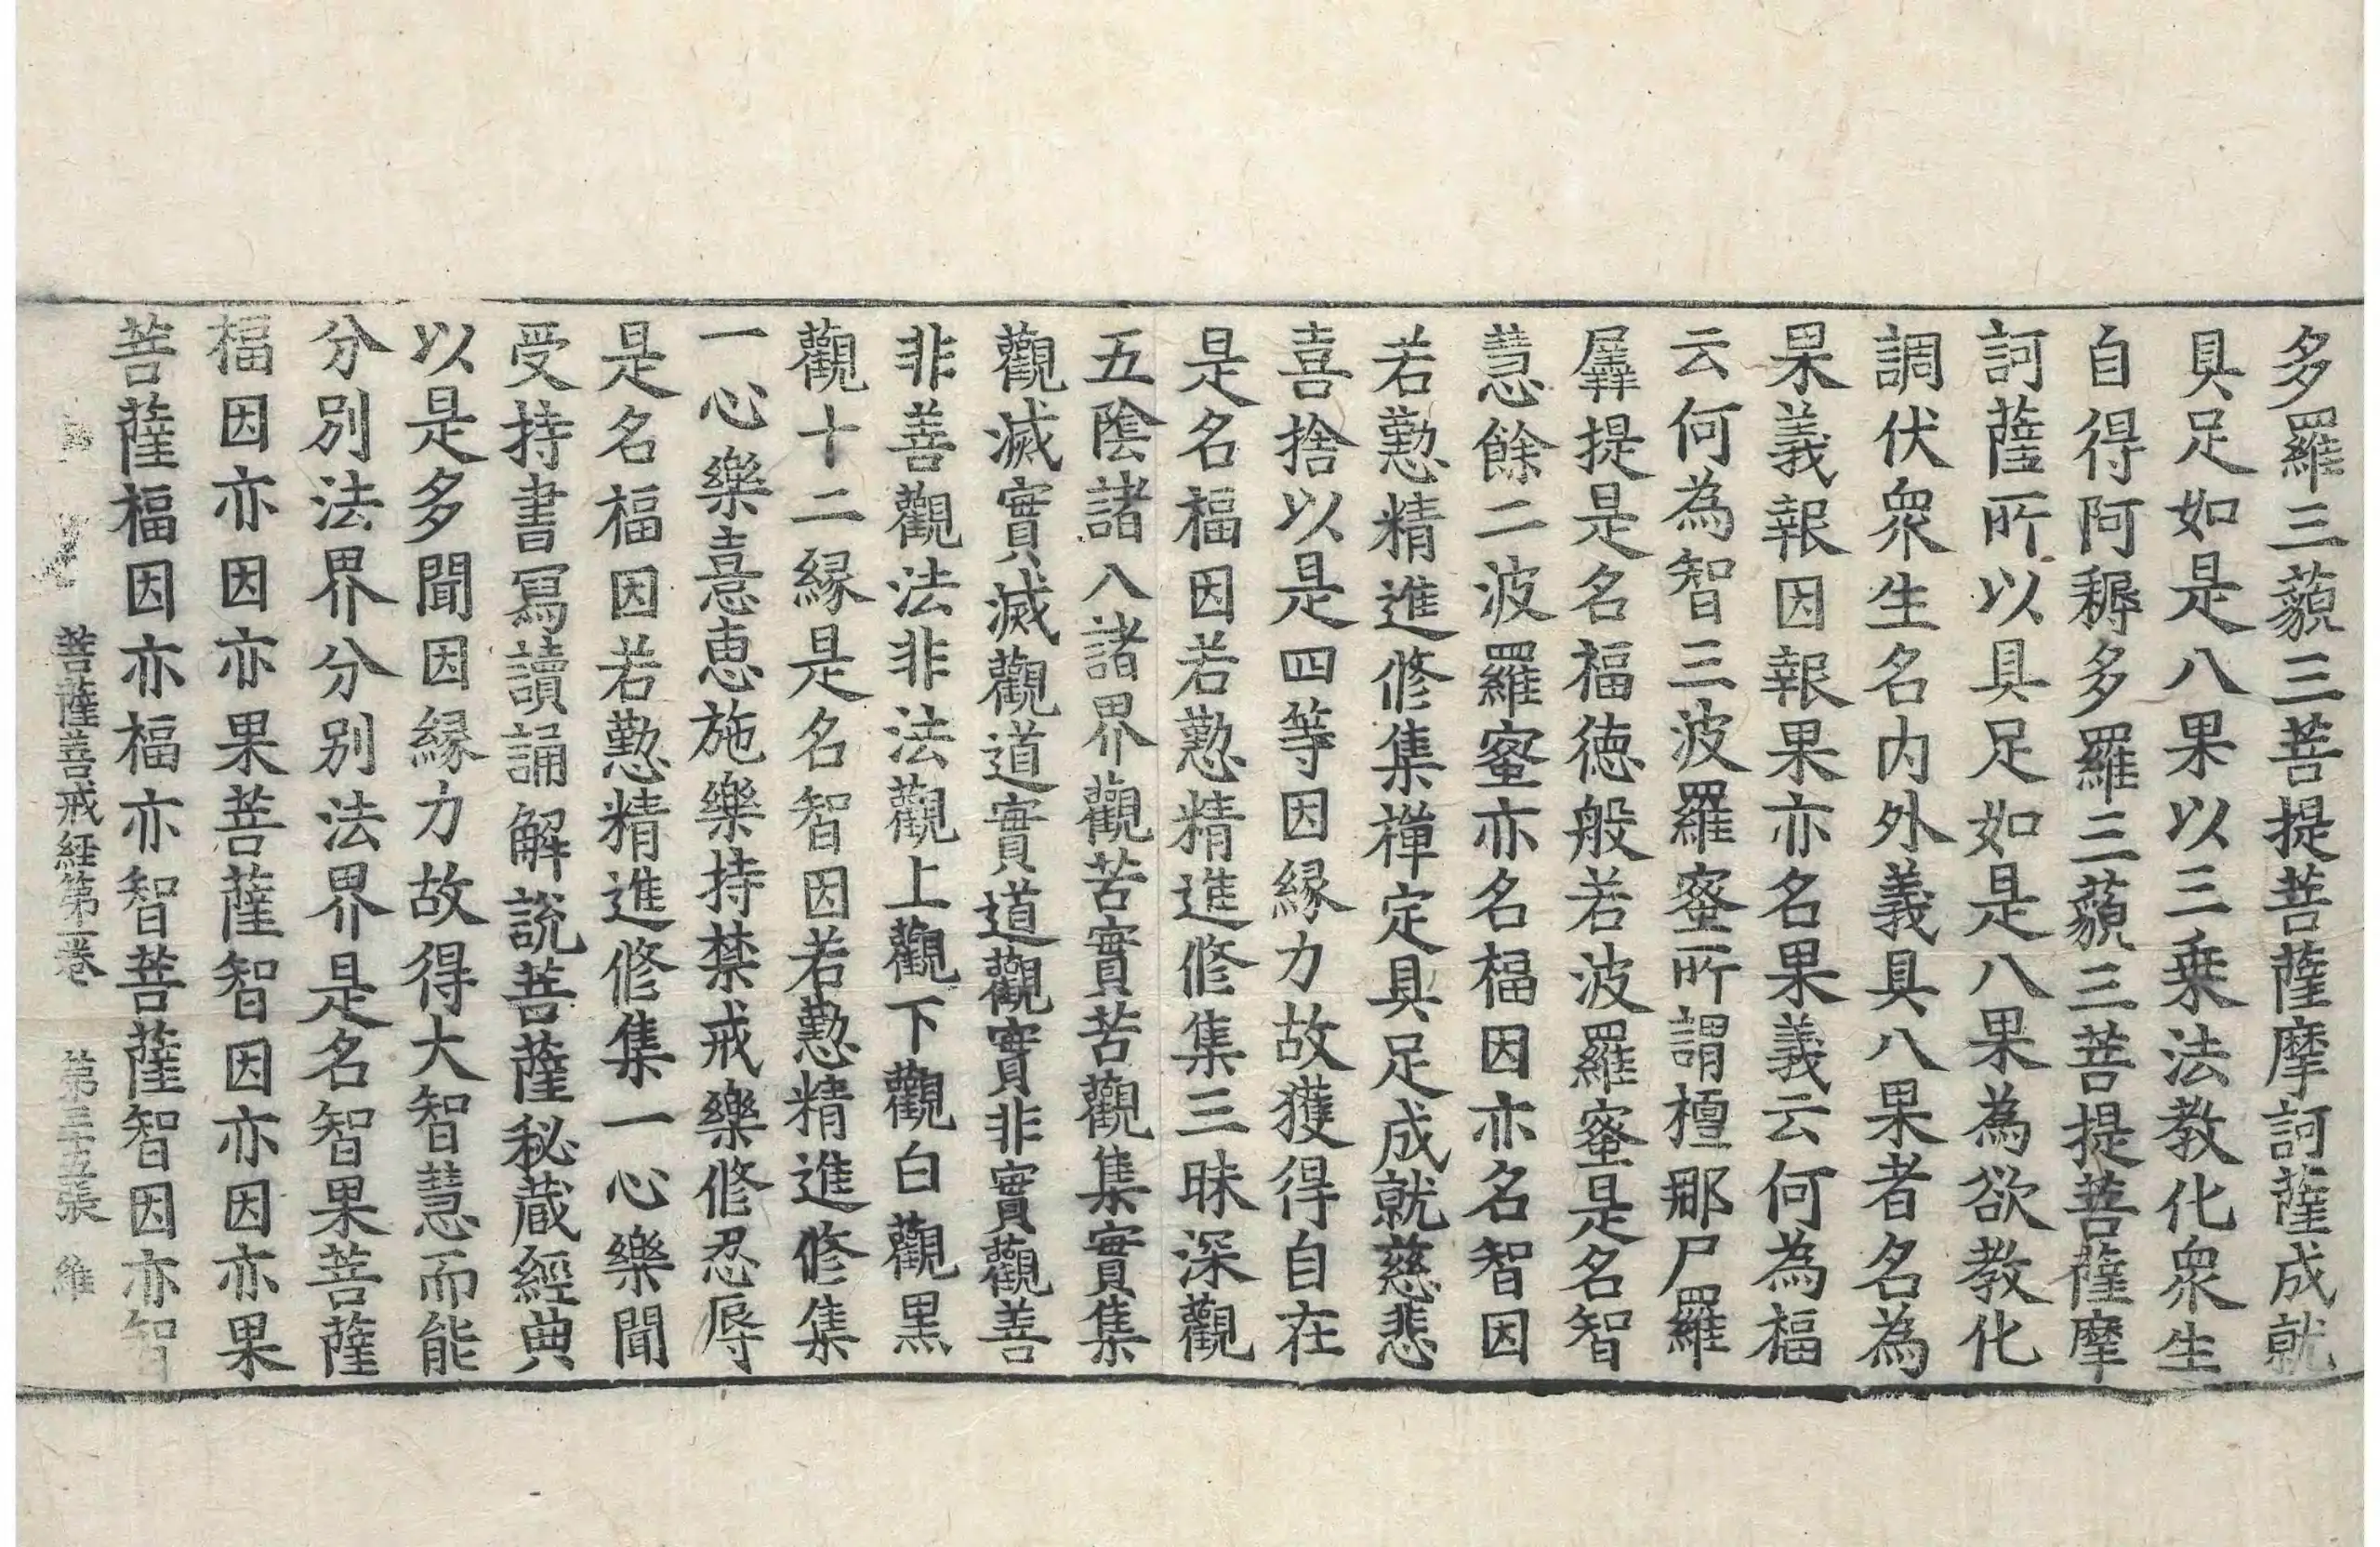 多羅三藐三菩提菩薩摩訶薩成就
具足如是八果以三乗法教化衆生
自得阿耨多羅三藐三菩提菩薩摩
訶薩所以具足如是八果為欲教化
調伏衆生名内外義具八果者名為
果義報因報果亦名果義云何為福
云何為智三波羅蜜所謂檀那尸羅
羼提是名福德般若波羅蜜是名智
慧餘二波羅蜜亦名福因亦名智因
若懃精進修集禪定具足成就慈悲
喜捨以是四等因縁力故獲得自在
是名福因若懃精進修集三昧深觀
五陰諸八諸界觀苦實苦觀集實集
觀滅實滅觀道實道觀實非實觀善
非善觀法非法觀上觀下觀白觀黒
觀十二縁是名智因若懃精進修集
一心樂憙恵施樂持禁戒樂修忍辱
是名福因若懃精進修集一心樂聞
受持書寫讀誦解說菩薩秘蔵經典
以是多聞因縁力故得大智慧而能
分別法界分別法界是名智果菩薩
福因亦因亦果菩薩智因亦因亦果
菩薩福因亦福亦智菩薩智因亦智
菩薩善戒經第一卷 第三十五張 維